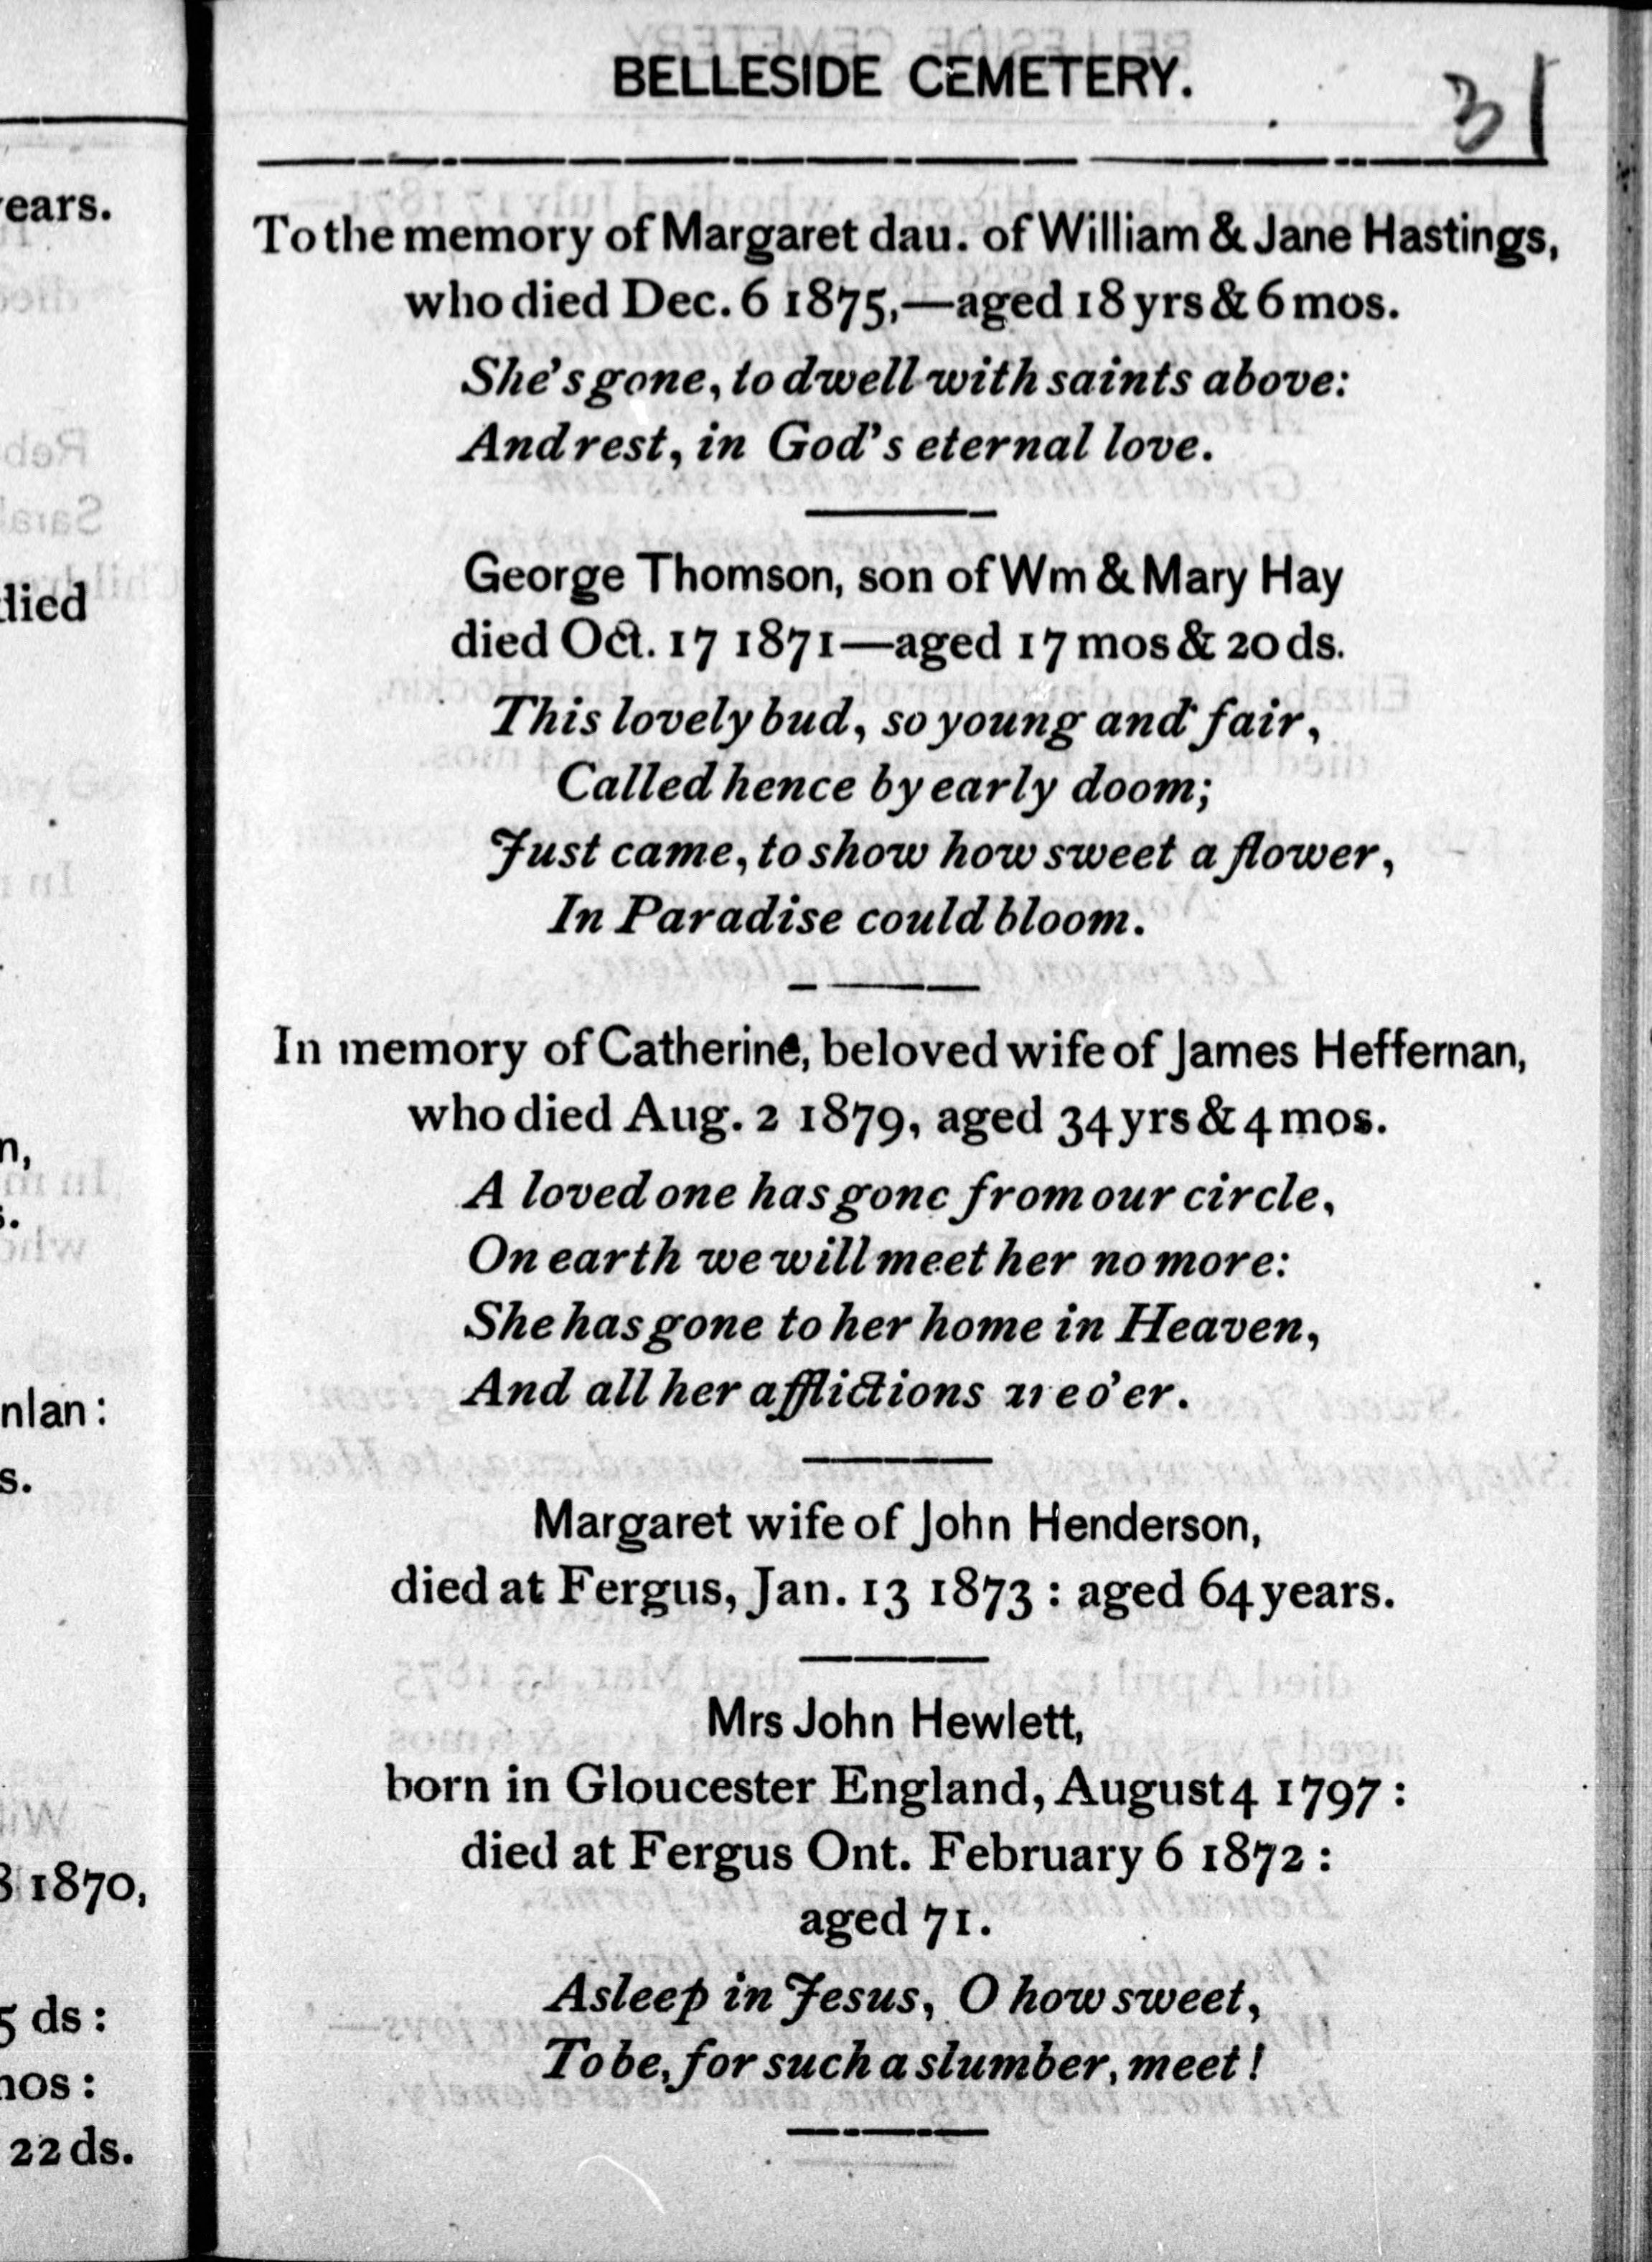 BELLESIDE CEMETERY.
31
To the memory of Margaret dau. of William & Jane Hastings,
who died Dec. 6 1875,—aged 18 yrs & 6 mos.
She's gone, to dwell with saints above:
And rest, in God's eternal love.
George Thomson, son of Wm & Mary Hay
died Oct. 17 1871—aged 17 mos & 20 ds.
This lovely bud, so young and fair,
Called hence by early doom;
Just came, to show how sweet a flower,
In Paradise could bloom.
In memory of Catherine, beloved wife of James Heffernan,
who died Aug. 2 1879, aged 34 yrs & 4 mos.
A loved one has gone from our circle,
On earth we will meet her no more:
She has gone to her home in Heaven,
And all her afflictions are o'er.
Margaret wife of John Henderson,
died at Fergus, Jan. 13 1873 : aged 64 years.
Mrs John Hewlett,
born in Gloucester England, August 4 1797 :
died at Fergus Ont. February 6 1872 :
aged 71.
Asleep in Jesus, O how sweet,
To be, for such a slumber, meet!
ears.
died
n,
s.
nlan :
s.
8 1870,
5 ds :
mos :
22 ds.